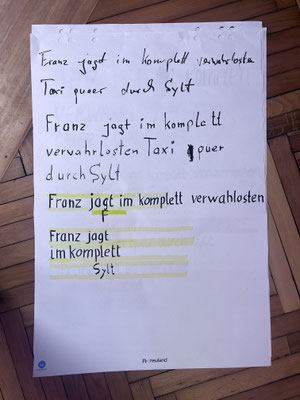 Franz jagt im komplett verwahrlosten
Taxi queer durch Sylt
Franz jagt im komplett
verwahrlosten Taxi quer
durch Sylt
Franz jagt im komplett verwahlosten
F
Franz jagt
im komplett
Sylt
neuland